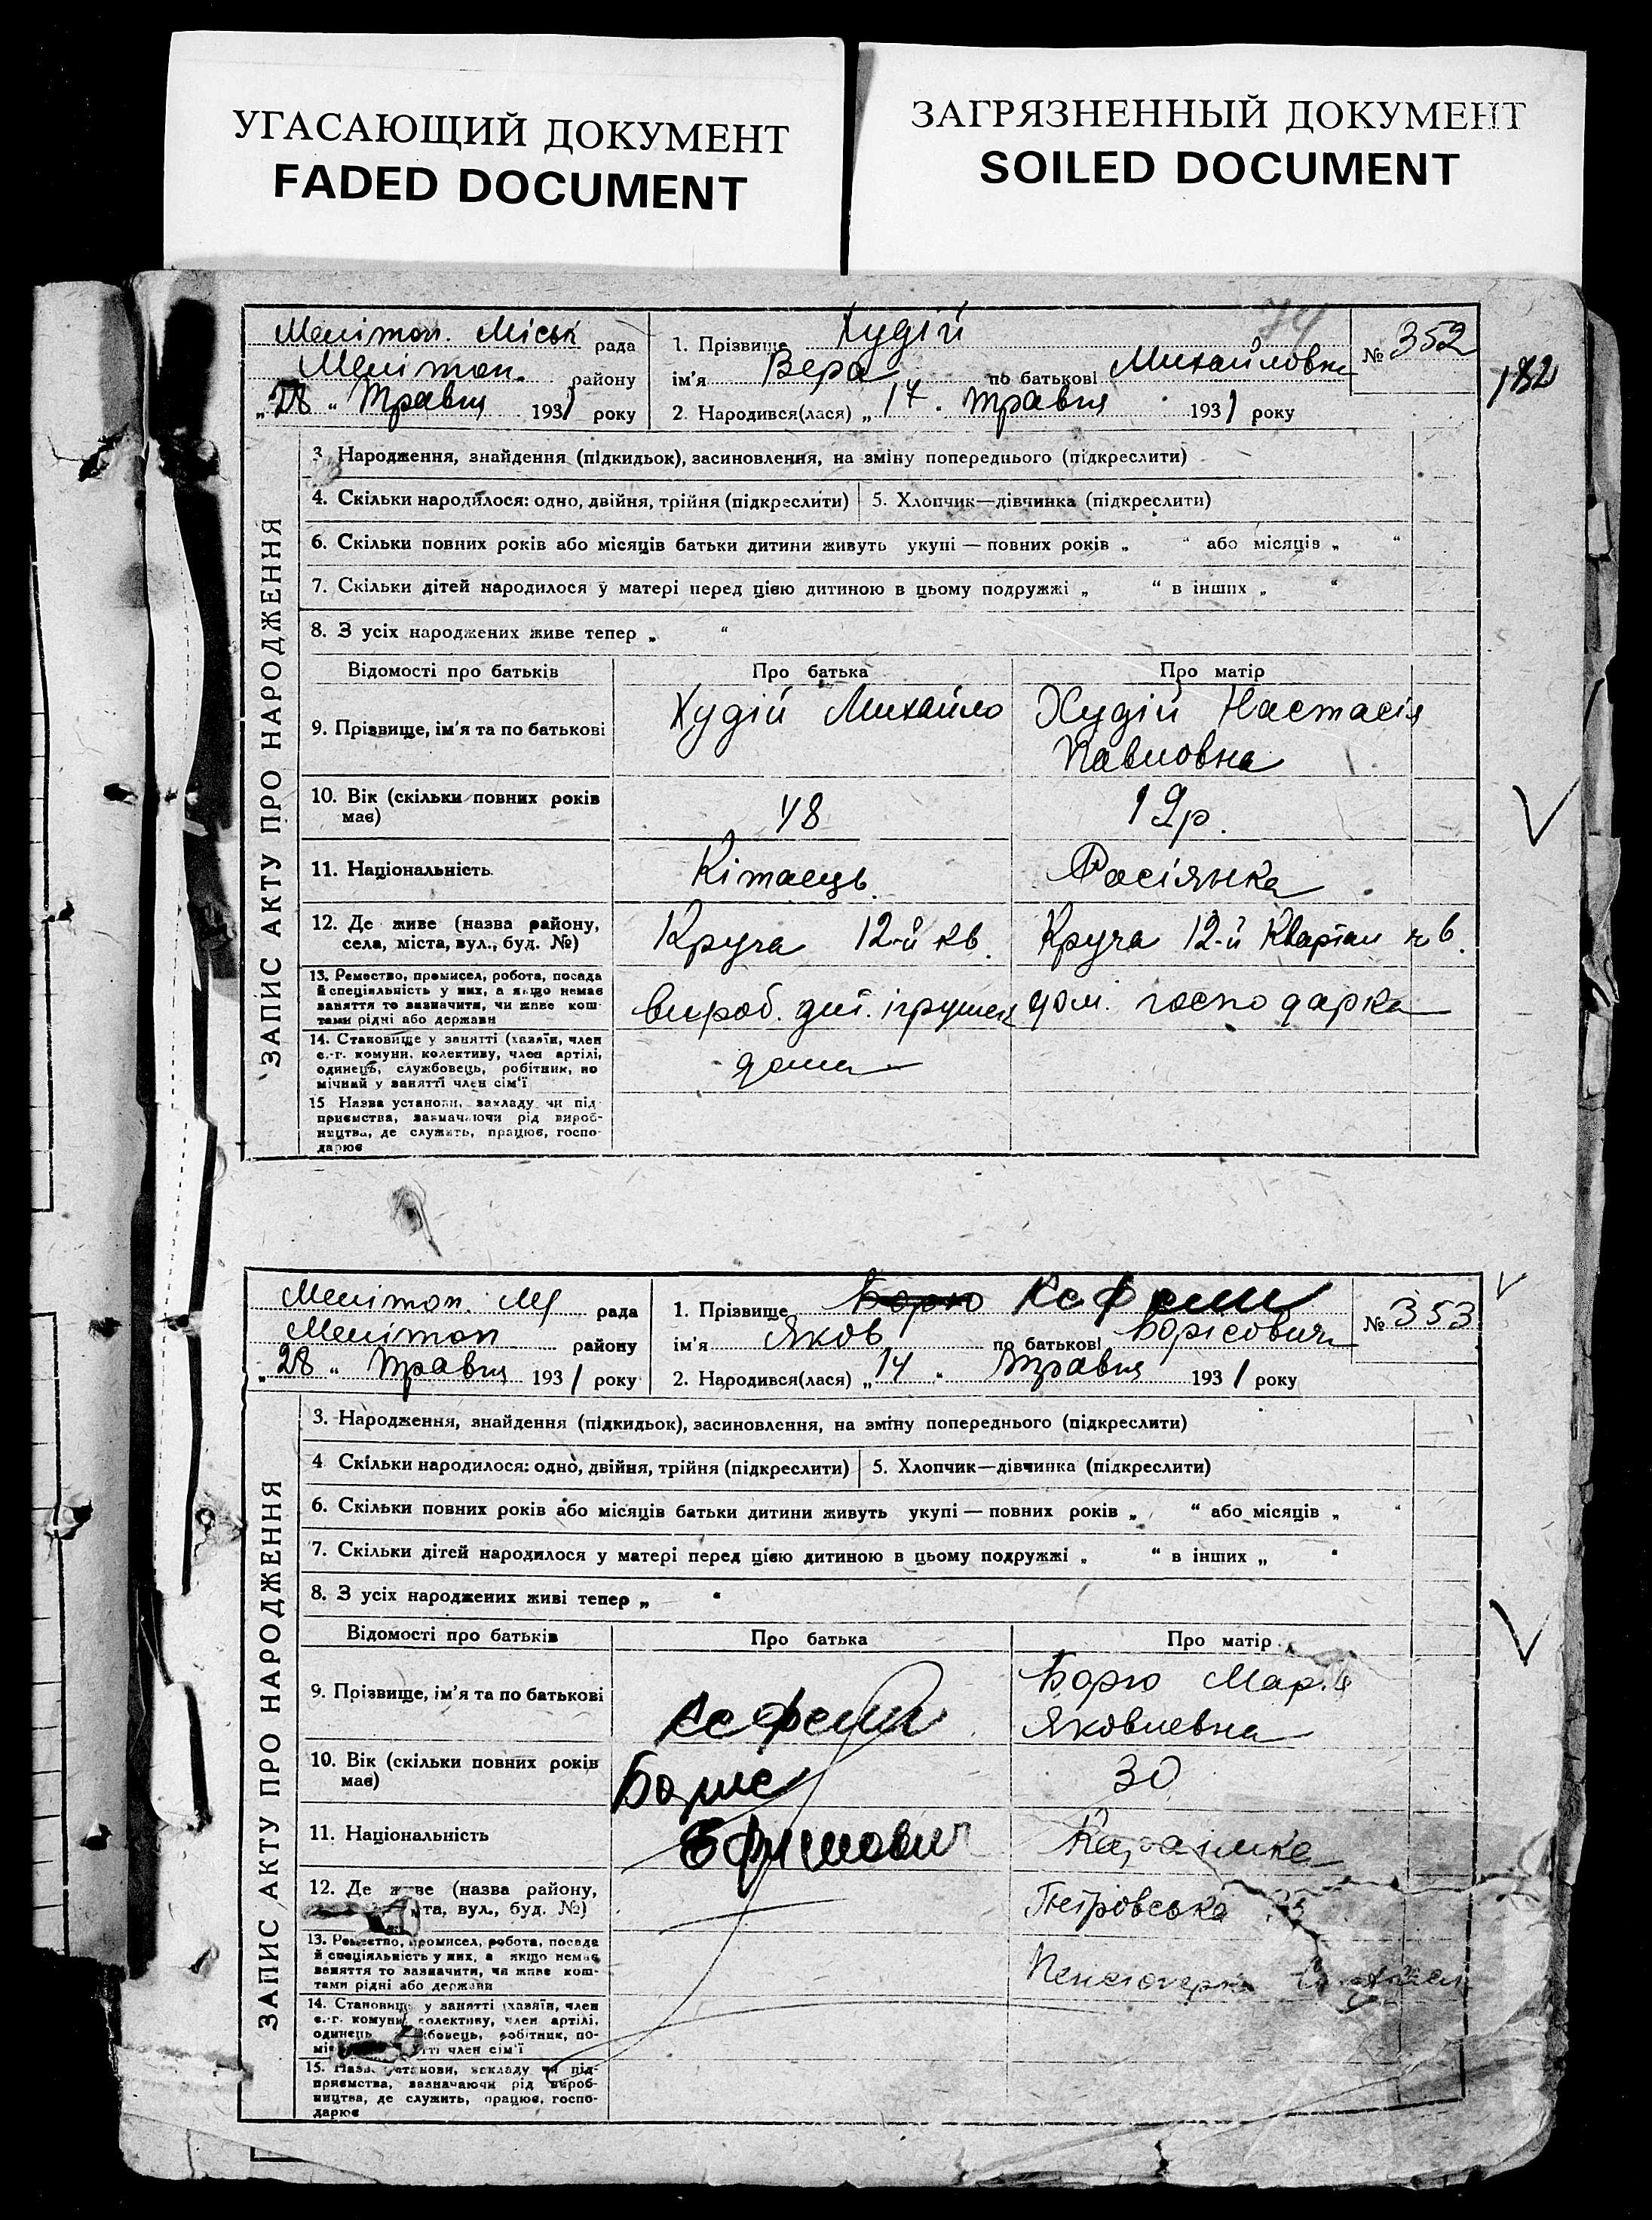 УГАСАЮЩИЙ ДОКУМЕНТ
FADED DOCUMENT
ЗАГРЯЗНЕННЫЙ ДОКУМЕНТ
SOILED DOCUMENT
Мелітоп. Міськ рада
Мелітоп. району
„28" Травня 1931 року
1. Прізвище Худій
ім'я Вера по батькові Михайловна
2. Народився(лася) „17" травня 1931 року
74
№ 352
182
ЗАПИС АКТУ ПРО НАРОДЖЕННЯ
3. Народження, знайдення (підкидьок), засиновлення, на зміну попереднього (підкреслити)
4. Скільки народилося: одно, двійня, трійня (підкреслити) 5. Хлопчик—дівчинка (підкреслити)
6. Скільки повних років або місяців батьки дитини живуть укупі — повних років „ " або місяців „ "
7. Скільки дітей народилося у матері перед цією дитиною в цьому подружжі „ " в інших „ "
8. З усіх народжених живе тепер „ "
Відомості про батьків Про батька Про матір
9. Прізвище, ім'я та по батькові Худій Михайло Худій Настасія
Павловна
10. Вік (скільки повних років
має) 48 19р.
11. Національність Кітаець Росіянка
12. Де живе (назва району,
села, міста, вул., буд. №) Круча 12-й кв. Круча 12-й Квартал
13. Ремество, промисел, робота, посада
й спеціяльність у них, а якщо немає
заняття то зазначити, чи живе кош-
тами рідні або держави
вироб. дит. ігрушек дом. господарка
14. Становище у занятті (хазяїн, член
с.-г. комуни, колективу, член артілі,
одинець, службовець, робітник, по
мічний у занятті член сім'ї
дома
15 Назва установи, закладу чи під
приємства, зазначаючи рід вироб-
ництва, де служить, працює, госпо-
дарює
Мелітоп. МР рада
Мелітоп району
„28" Травня 1931 року
1. Прізвище Борю Кефели
ім'я Яков по батькові Борісович
2. Народився(лася) „14" травня 1931 року
№ 353
ЗАПИС АКТУ ПРО НАРОДЖЕННЯ
3. Народження, знайдення (підкидьок), засиновлення, на зміну попереднього (підкреслити)
4 Скільки народилося: одно, двійня, трійня (підкреслити) 5. Хлопчик—дівчинка (підкреслити)
6. Скільки повних років або місяців батьки дитини живуть укупі — повних років „ " або місяців „ "
7. Скільки дітей народилося у матері перед цією дитиною в цьому подружжі „ " в інших „ "
8. З усіх народжених живі тепер „ "
Відомості про батьків Про батька Про матір
9. Прізвище, ім'я та по батькові Кефели Борю Марія
Яковлевна
10. Вік (скільки повних років
має) Борис 30
11. Національність Ефимович Караімка
12. Де живе (назва району,
та, вул., буд. №) Петровська
13. Ремество, промисел, робота, посада
й спеціяльність у них, а якщо немає
заняття то зазначити, чи живе кош-
тами рідні або держави
Пенсіонерка
14. Становище у занятті (хазяїн, член
с.-г. комуни, колективу, член артілі,
одинець, службовець, робітник, по-
мічний у занятті член сім'ї
15. Назва установи, закладу чи під-
приємства, зазначаючи рід вироб-
ництва, де служить, працює, госпо-
дарює